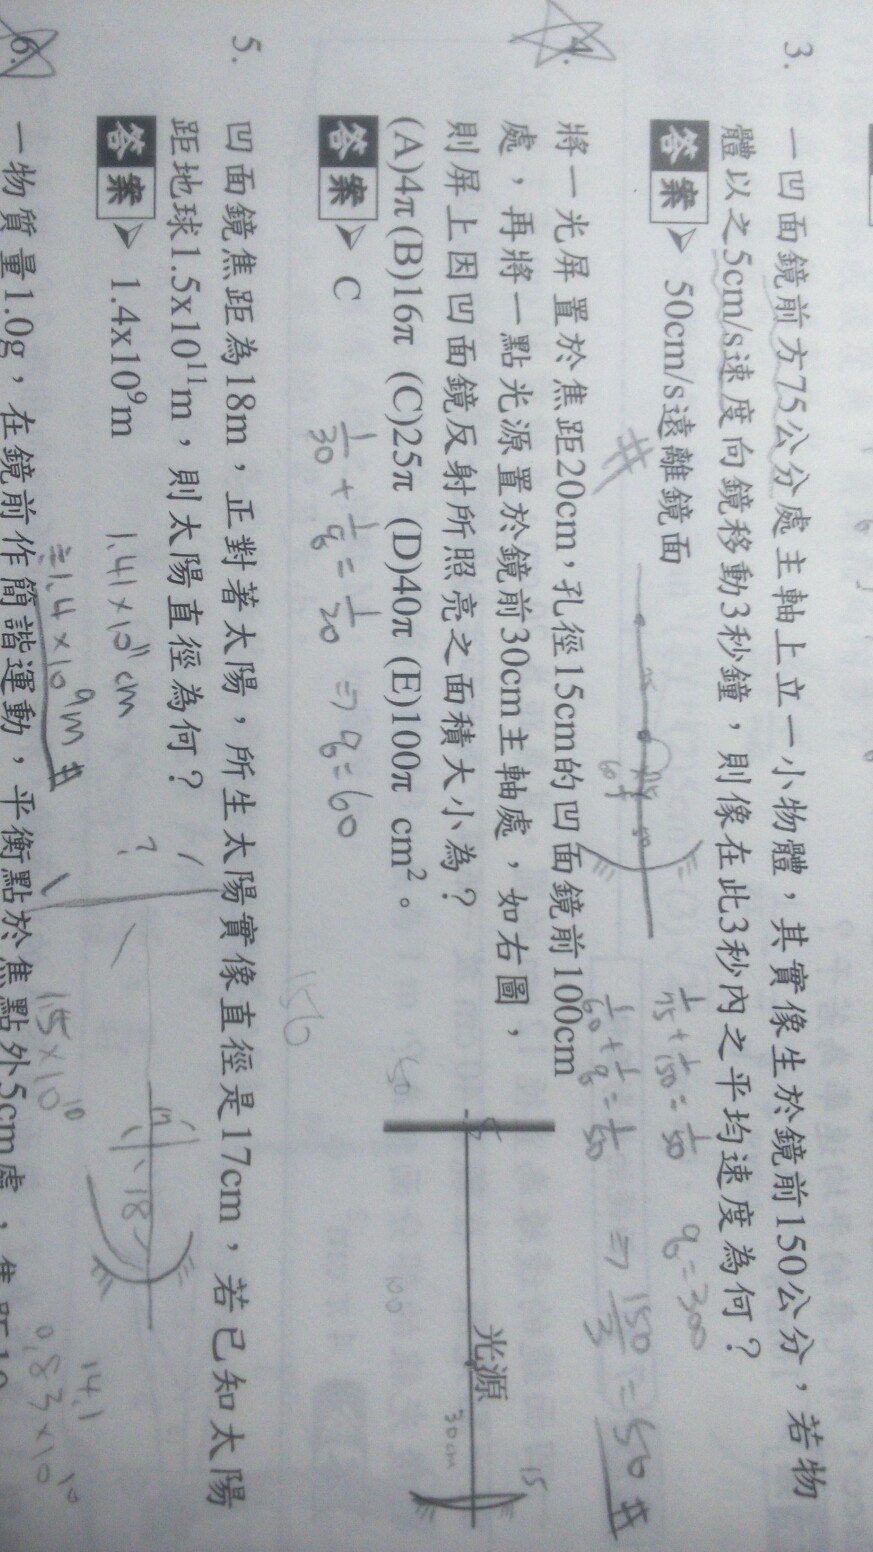 3. 一凹面鏡前方75公分處主軸上立一小物體，其實像生於鏡前150公分，若物
體以之5cm/s速度向鏡移動3秒鐘，則像在此3秒內之平均速度為何？
答案 ➤ 50cm/s遠離鏡面
1/75 + 1/150 = 1/50 q=300
1/60 + 1/q = 1/50 ⇒ 150/3 = 50 #
60
4. 將一光屏置於焦距20cm，孔徑15cm的凹面鏡前100cm
處，再將一點光源置於鏡前30cm主軸處，如右圖，
則屏上因凹面鏡反射所照亮之面積大小為？
(A)4π (B)16π (C)25π (D)40π (E)100π cm²。
光源
30cm
15
答案 ➤ C
1/30 + 1/q = 1/20 ⇒ q=60
5. 凹面鏡焦距為18m，正對著太陽，所生太陽實像直徑是17cm，若已知太陽
距地球1.5x10¹¹m，則太陽直徑為何？
答案 ➤ 1.4x10⁹m
1.41×10¹¹cm
≒1.4×10⁹m #
?
18
1.5×10¹⁰
14.1
0.83×10¹⁰
6. 一物質量1.0g，在鏡前作簡諧運動，平衡點於焦點外5cm處，焦距10